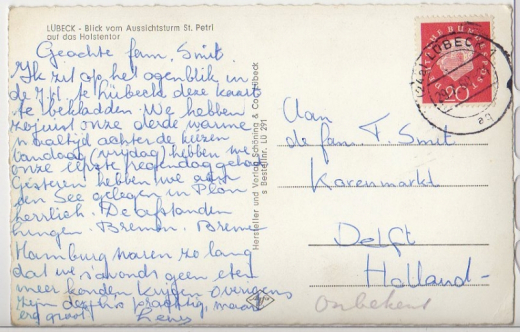 LÜBECK - Blick vom Aussichtsturm St. Petri
auf das Holstentor
Geachte fam. Smit.
Ik zit op het ogenblik in
de te Lübeck deze kaart
te bekladden. We hebben
zojuist onze derde warme
maaltijd achter de kiezen
Vandaag (vrijdag) hebben we
onze eerste
Gisteren hebben we
den See gelegen in Plön
heerlijk. De afstanden
Bremen. Bremen
Hamburg waren zo lang
dat we s'avonds geen eten
meer konden krijgen. Overigens
zijn prachtig, maar
erg groot
Hersteller und Verlag Schöning & Co., Lübeck
Bestellnr. Lü 291
DEUTSCHE BUNDESPOST
20
LÜBECK 1
Aan
de fam. T. Smit
Korenmarkt
Delft
Holland-
Onbekend